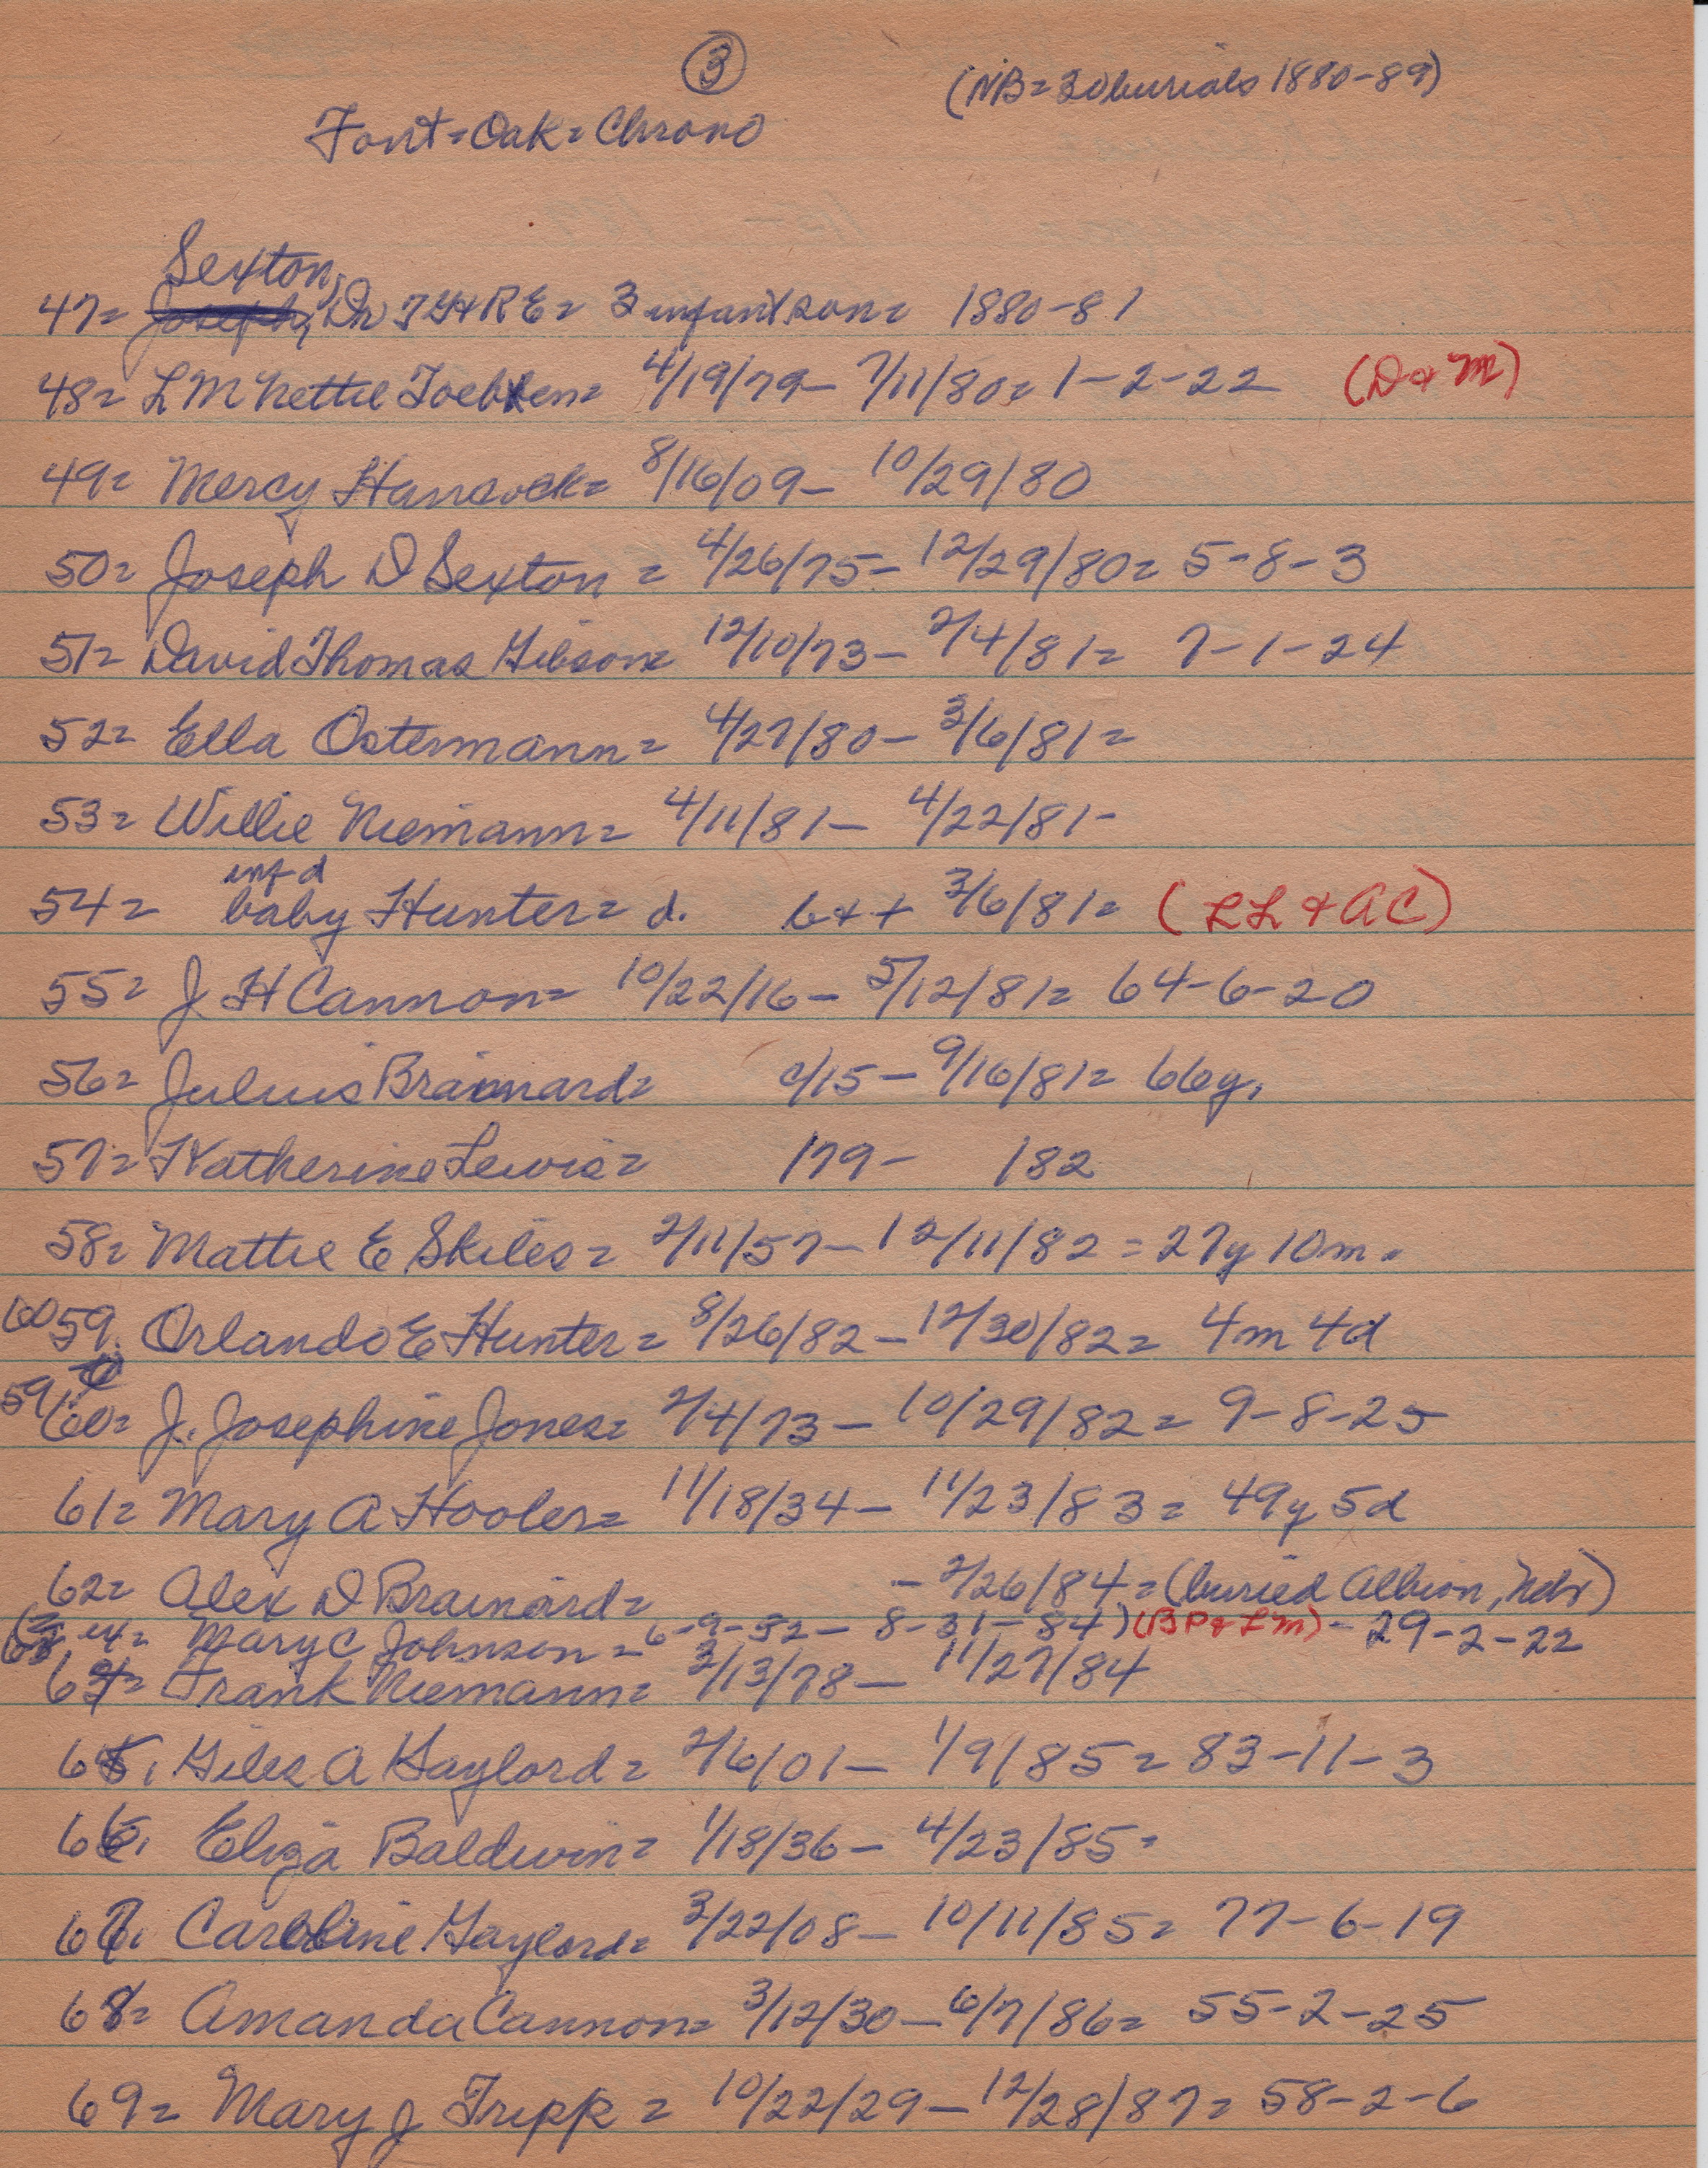 ③
(NB = 30 burials 1880-89)
Font = Oak = Chrono
Sexton,
47 = Joseph, Dr T G & R E = 3 infant son = 1880-81
48 = L M Nettie Toebben = 4/19/79 - 7/11/80 = 1-2-22 (D & M)
49 = Mercy Hancock = 8/16/09 - 10/29/80
50 = Joseph D Sexton = 4/26/75 - 12/29/80 = 5-8-3
51 = David Thomas Gibson = 12/10/73 - 2/4/81 = 7-1-24
52 = Ella Ostermann = 4/27/80 - 3/6/81 =
53 = Willie Niemann = 4/11/81 - 4/22/81 -
inf d
54 = baby Hunter = d. b & + 3/6/81 = (LL & AC)
55 = J H Cannon = 10/22/16 - 5/12/81 = 64-6-20
56 = Juluis Brainard = c/15 - 9/16/81 = 66y.
57 = Katherine Lewis = /79 - /82
58 = Mattie E Skiles = 2/11/57 - 12/11/82 = 27y 10m.
60 59. Orlando E Hunter = 8/26/82 - 12/30/82 = 4m 4d
59 60 = J. Josephine Jones = 2/4/73 - 10/29/82 = 9-8-25
61 = Mary A Hooler = 11/18/34 - 11/23/83 = 49y 5d
62 = Alex D Brainard = - 2/26/84 = (buried Albion, Nebr)
63 = Mary C Johnson = 6-9-52 - 8-31-84) (BP & LM) - 29-2-22
64 = Frank Niemann = 3/13/78 - 11/27/84
65. Giles A Gaylord = 2/6/01 - 1/9/85 = 83-11-3
66. Eliza Baldwin = 1/18/36 - 4/23/85 =
67. Caroline Gaylord = 3/22/08 - 10/11/85 = 77-6-19
68 = Amanda Cannon = 3/12/30 - 6/7/86 = 55-2-25
69 = Mary J Tripp = 10/22/29 - 12/28/87 = 58-2-6